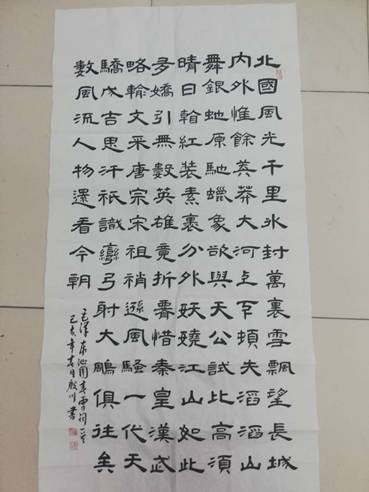 北國風光千里冰封萬裏雪飄望長城
内外惟餘莽莽大河上下頓失滔滔山
舞銀蛇原馳蠟象欲與天公試比高須
晴日看紅装素裹分外妖嬈江山如此
多嬌引無數英雄競折腰惜秦皇漢武
略輸文采唐宗宋祖稍遜風騷一代天
驕成吉思汗祇識彎弓射大鵰俱往矣
數風流人物還看今朝
毛澤東沁園春雪詞一首
己亥年春月川書